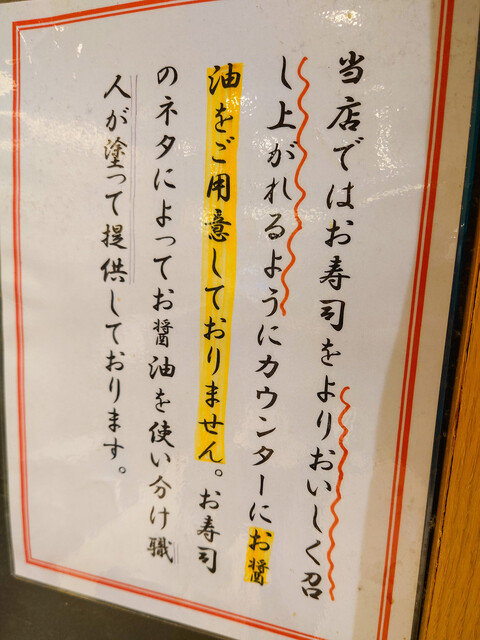 当店ではお寿司をよりおいしく召
し上がれるようにカウンターにお醤
油をご用意しておりません。お寿司
のネタによってお醤油を使い分け職
人が塗って提供しております。